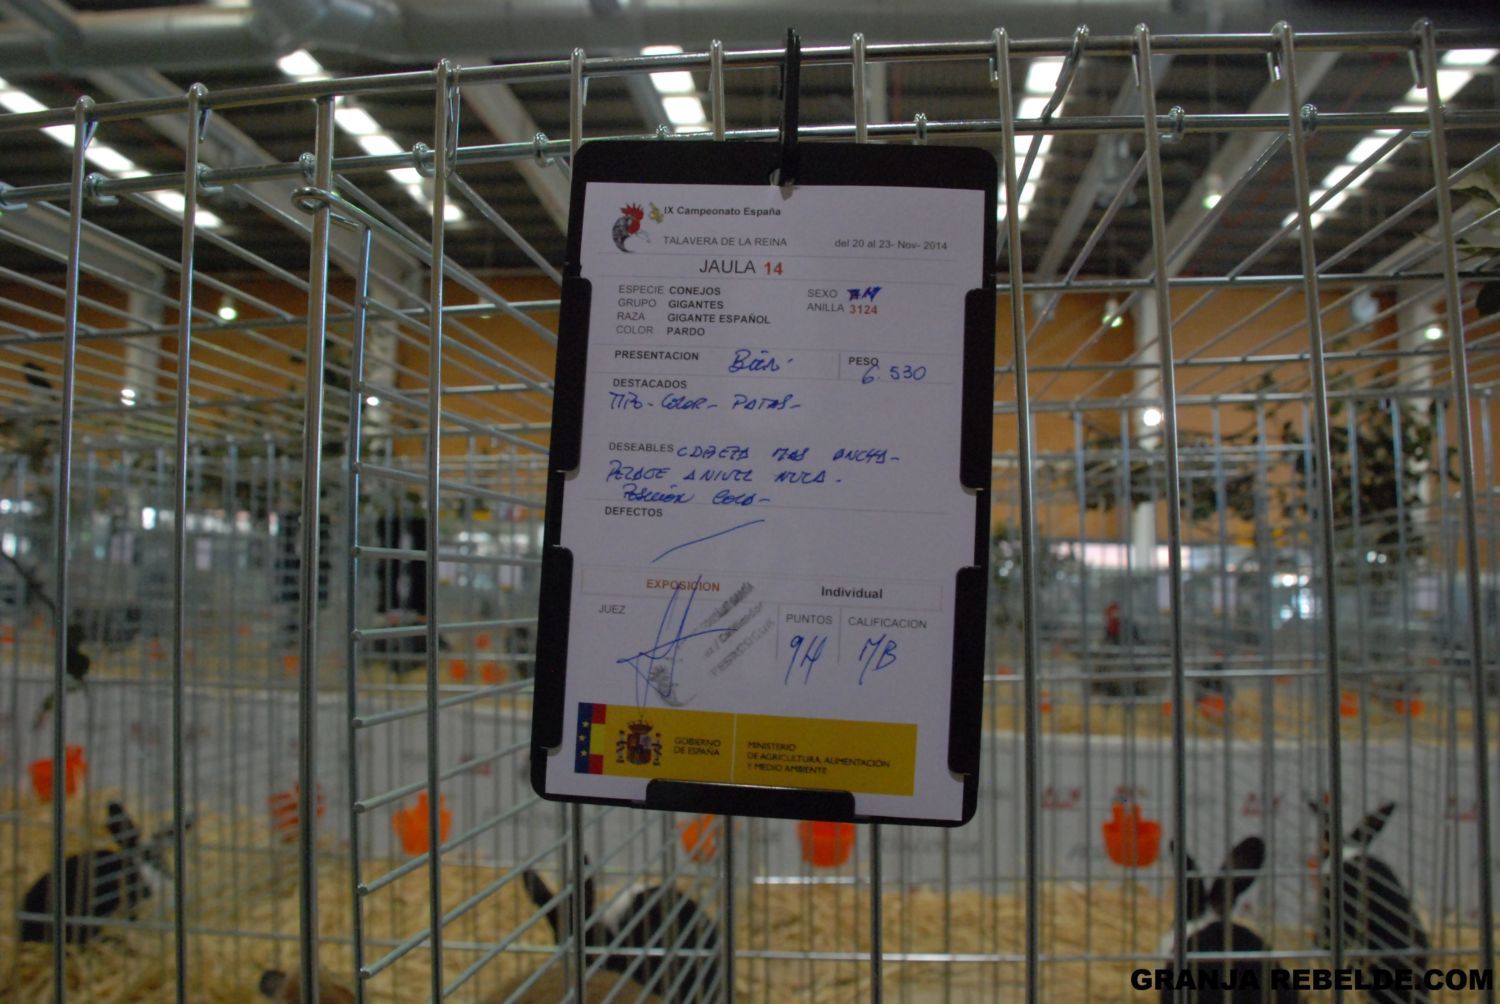 IX Campeonato España
TALAVERA DE LA REINA del 20 al 23- Nov- 2014
JAULA 14
ESPECIE CONEJOS SEXO
GRUPO GIGANTES ANILLA 3124
RAZA GIGANTE ESPAÑOL
COLOR PARDO
PRESENTACION Bien. PESO 6.530
DESTACADOS
TIPO - COLOR - PATAS -
DESEABLES CABEZA MAS ANCHA -
PELAJE A NIVEL NUCA .
POSICIÓN COLA -
DEFECTOS
EXPOSICION Individual
JUEZ PUNTOS CALIFICACION
94 MB
GOBIERNO
DE ESPAÑA
MINISTERIO
DE AGRICULTURA, ALIMENTACIÓN
Y MEDIO AMBIENTE
GRANJA REBELDE.COM